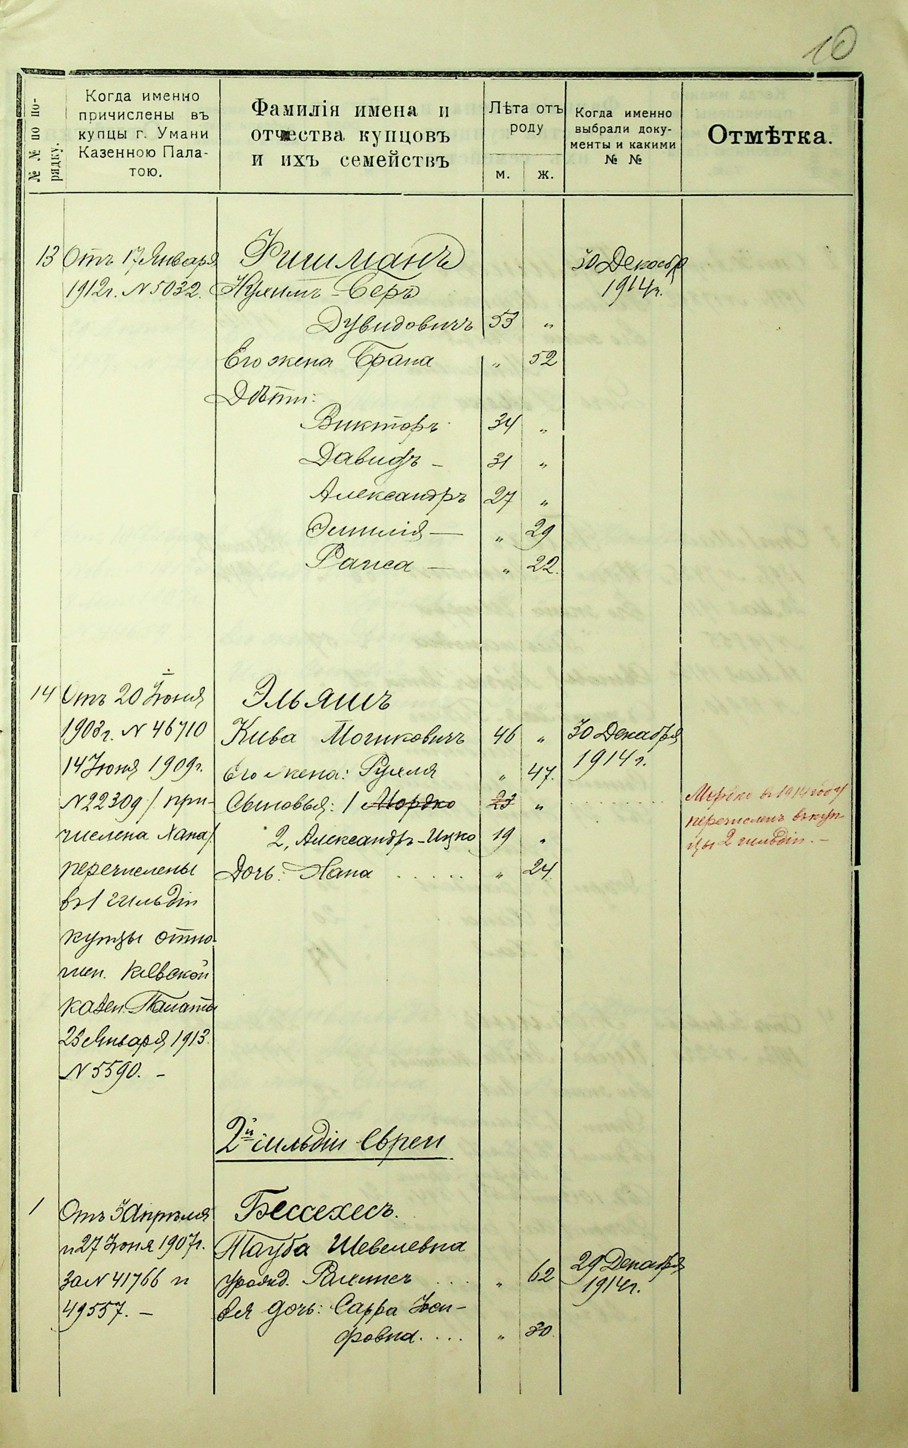 10
№ № по по-
рядку.
Когда именно
причислены въ
купцы г. Умани
Казенною Пала-
тою.
Фамилія имена и
отчества купцовъ
и ихъ семействъ
Лѣта отъ
роду
м. ж.
Когда именно
выбрали доку-
менты и какими
№ №
Отмѣтка.
13 Отъ 17 Января Фишманъ 30 Декабр
1912г. N 5032. Нухимъ-Беръ 1914г.
Дувидовичъ 53 „
Его жена Брана „ 52
Дѣти:
Викторъ 34 „
Давидъ – 31 „
Александръ 27 „
Эмилія — „ 29
Раиса — „ 22.
14 Отъ 20 Іюня Эльяшъ
1903г. N 46710 Кива Мошковичъ 46 „ 30 Декабря
14 Іюня 1909г. Его жена: Рухля „ 47. 1914 г.
N 22309 /при- Сыновья: 1 Мордко 23 „ Мордко въ 1914 году
числена Хана/ 2, Александръ-Ицко 19 „ перечисленъ въ куп-
цы 2 гильдіи. –
перечислены Дочь: Хана ..... „ 24
въ 1 гильдіи
купцы отно-
шен. Кіевской
казен. Палаты
23 Января 1913.
N 5590. –
2й гильдіи Евреи
1 Отъ 3 Апрѣля Бессехесъ.
и 27 Іюня 1907г. Тауба Шевелевна
за N 41766 и урожд. ... „ 62 29 Декабря
1914г.
49557. – Ея дочь: Сарра Іои-
фовна.... „ 30